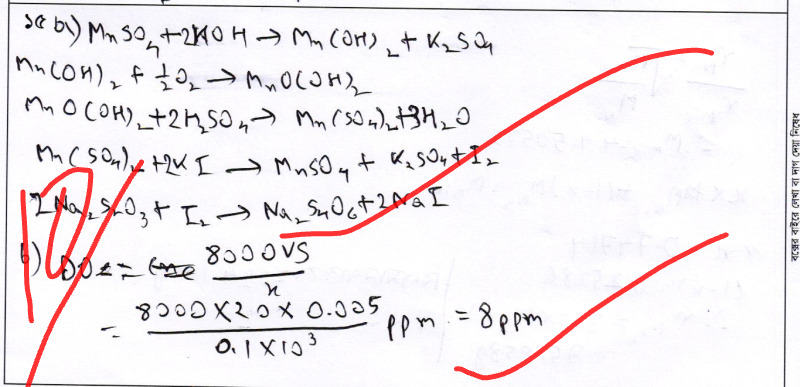 a) MnSO4+2KOH → Mn(OH)2+K2SO4
Mn(OH)2 + 1/2 O2 → MnO(OH)2
MnO(OH)2+2H2SO4 → Mn(SO4)2+3H2O
Mn(SO4)2+2KI → MnSO4+ K2SO4+I2
2Na2S2O3+ I2 → Na2S4O6+2NaI
b) DO = 8000VS/x
= 8000X20X 0.005/0.1X10^3 ppm = 8ppm
10
বক্সের বাইরে লেখা বা দাগ দেয়া নিষেধ